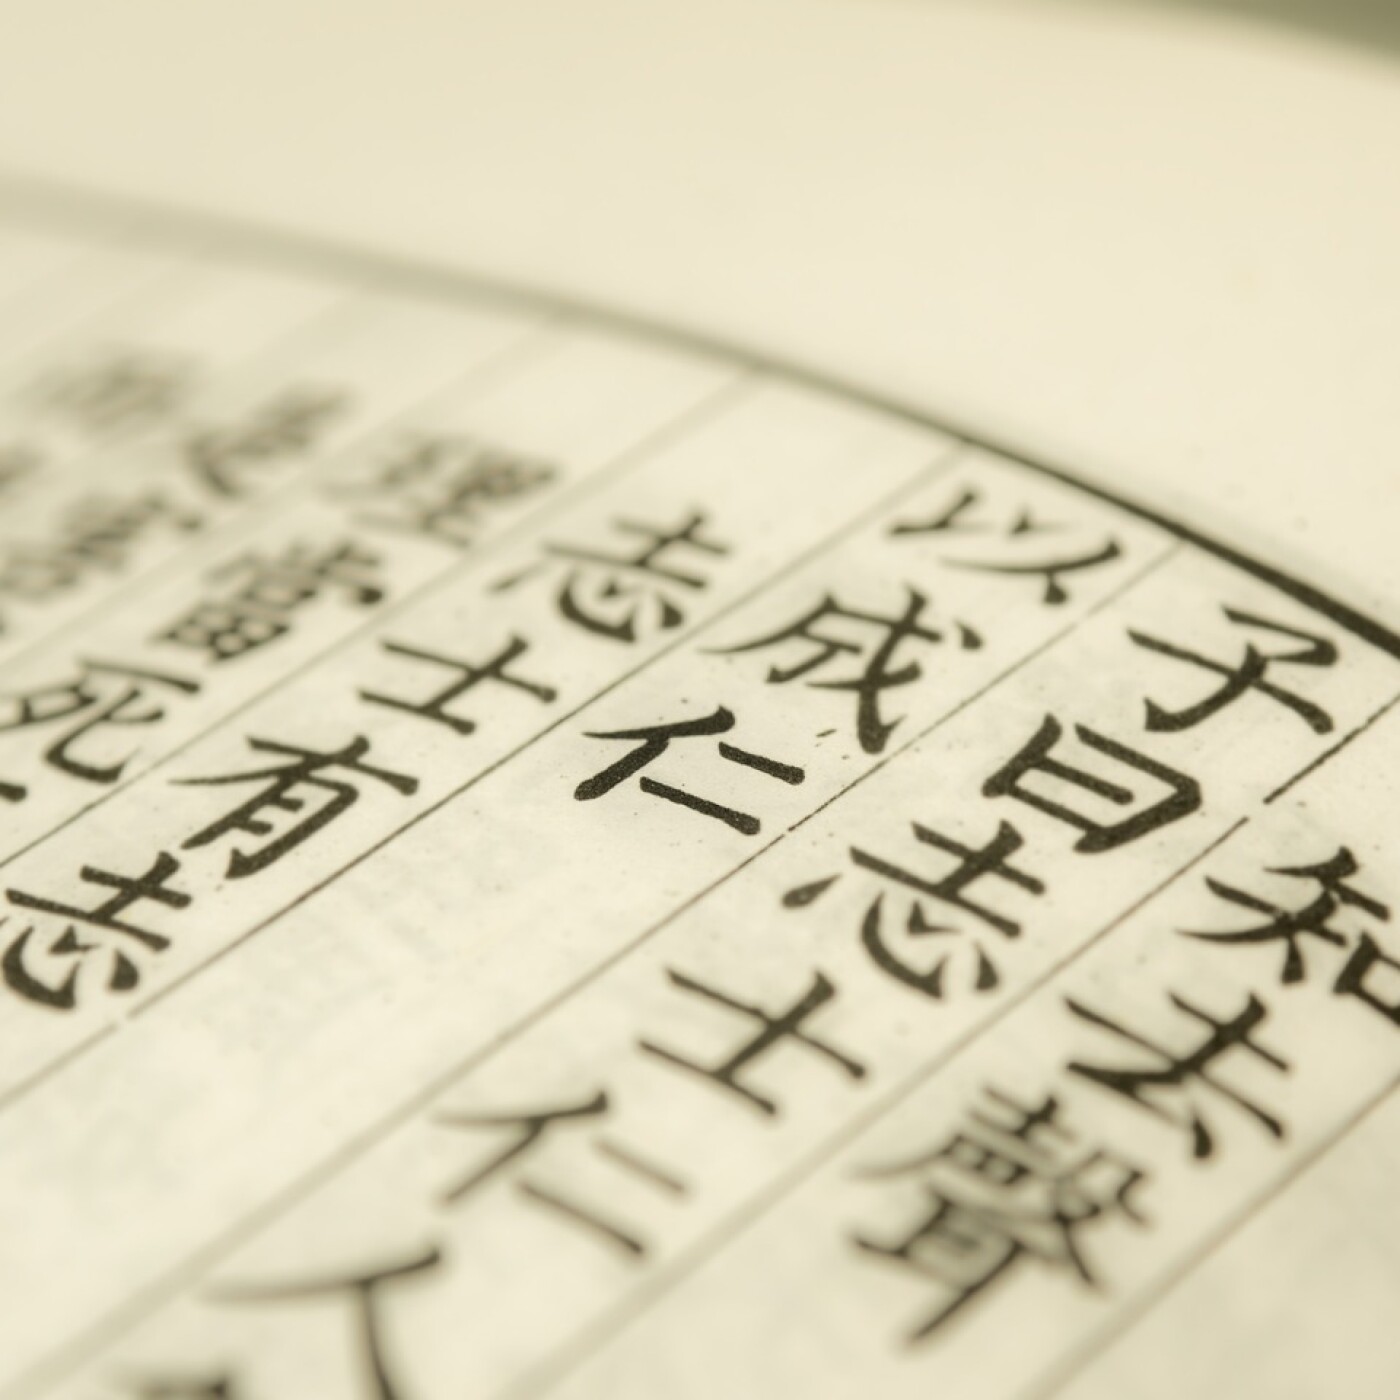 知去聲
子曰志士仁人
以成仁
志士有志
理當死